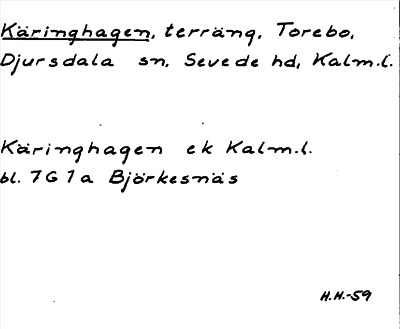 Käringhagen, terräng, Torebo,
Djursdala sn, Sevede hd, Kalm.l.
Käringhagen ek Kalm.l.
bl. 7G 1a Björkesnäs
H.H.-59